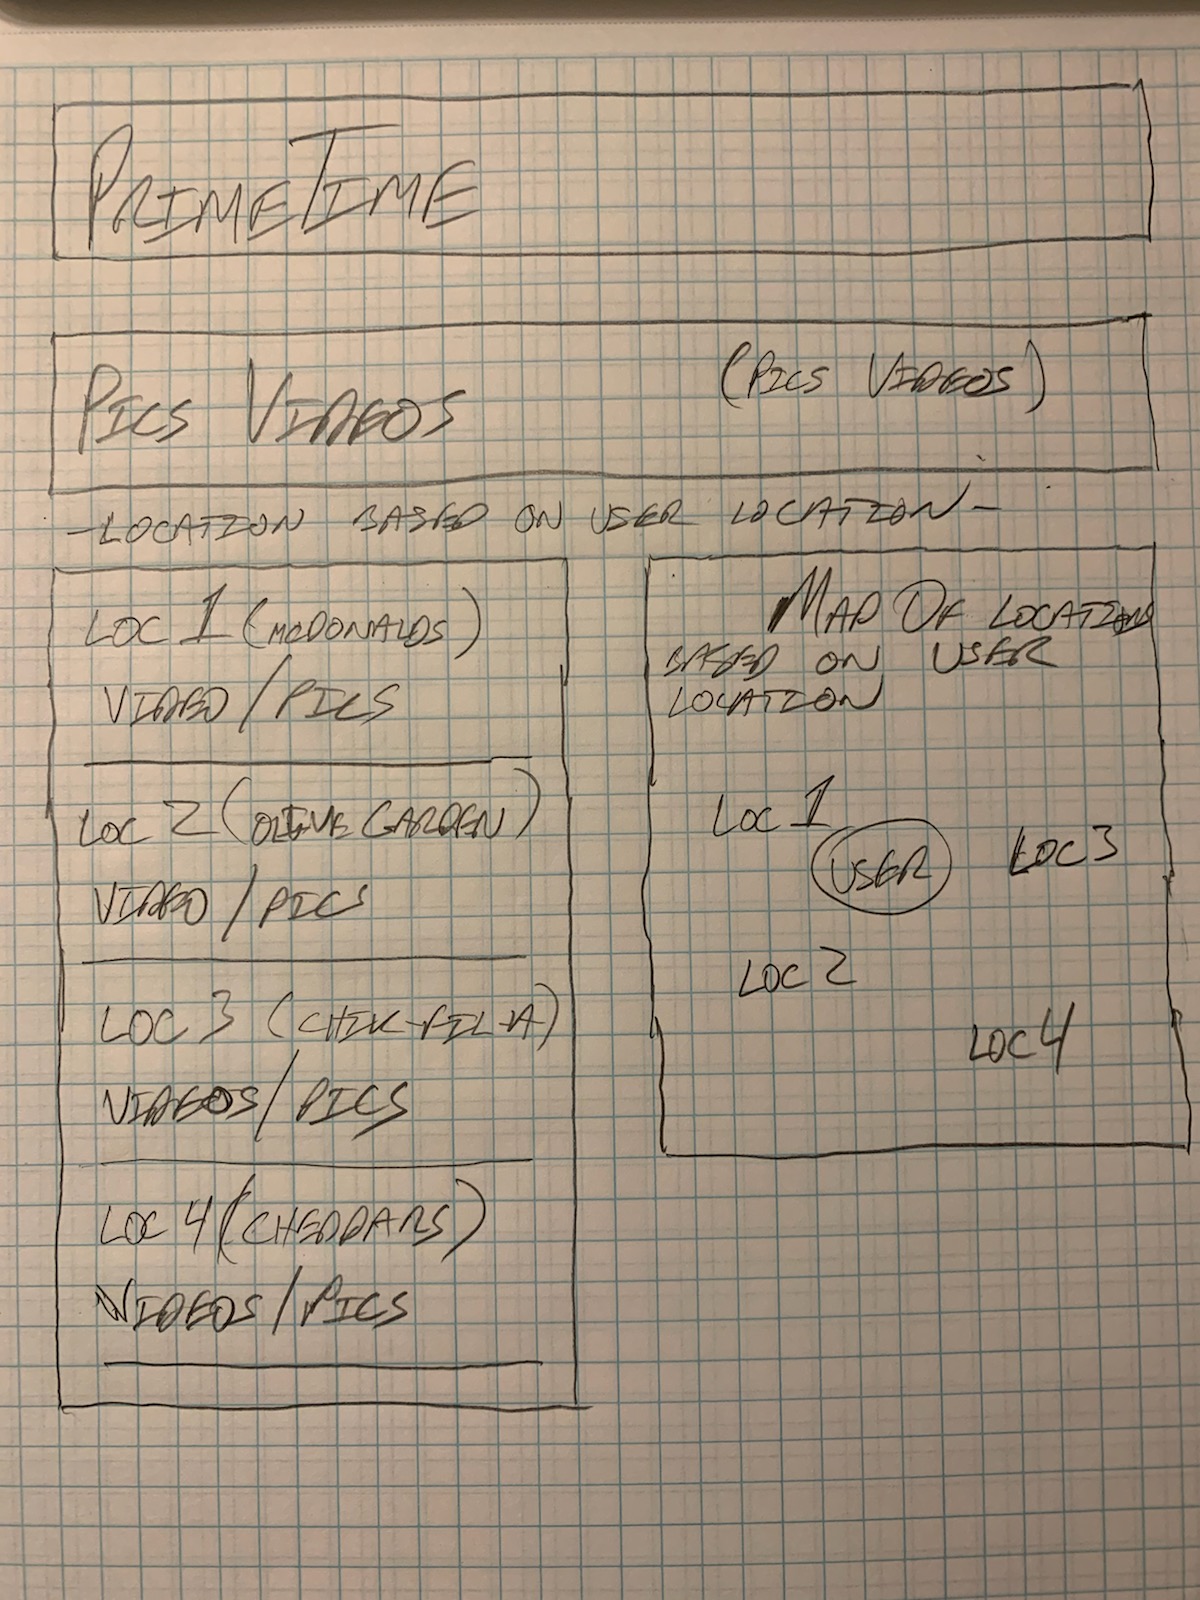 PRIMETIME
PICS VIDEOS (PICS VIDEOS)
-LOCATION BASED ON USER LOCATION-
LOC 1 (MCDONALDS)
VIDEO/PICS
LOC 2 (OLIVE GARDEN)
VIDEO/PICS
LOC 3 (CHIK-FIL-A)
VIDEOS/PICS
LOC 4 (CHEDDARS)
VIDEOS/PICS
MAP OF LOCATION
BASED ON USER
LOCATION
LOC 1
USER
LOC 3
LOC 2
LOC 4